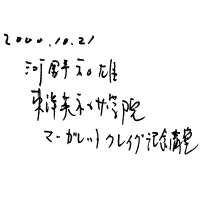 2000.10.21
河野和雄
東洋英和女学院
マーガレットクレイグ記念講堂